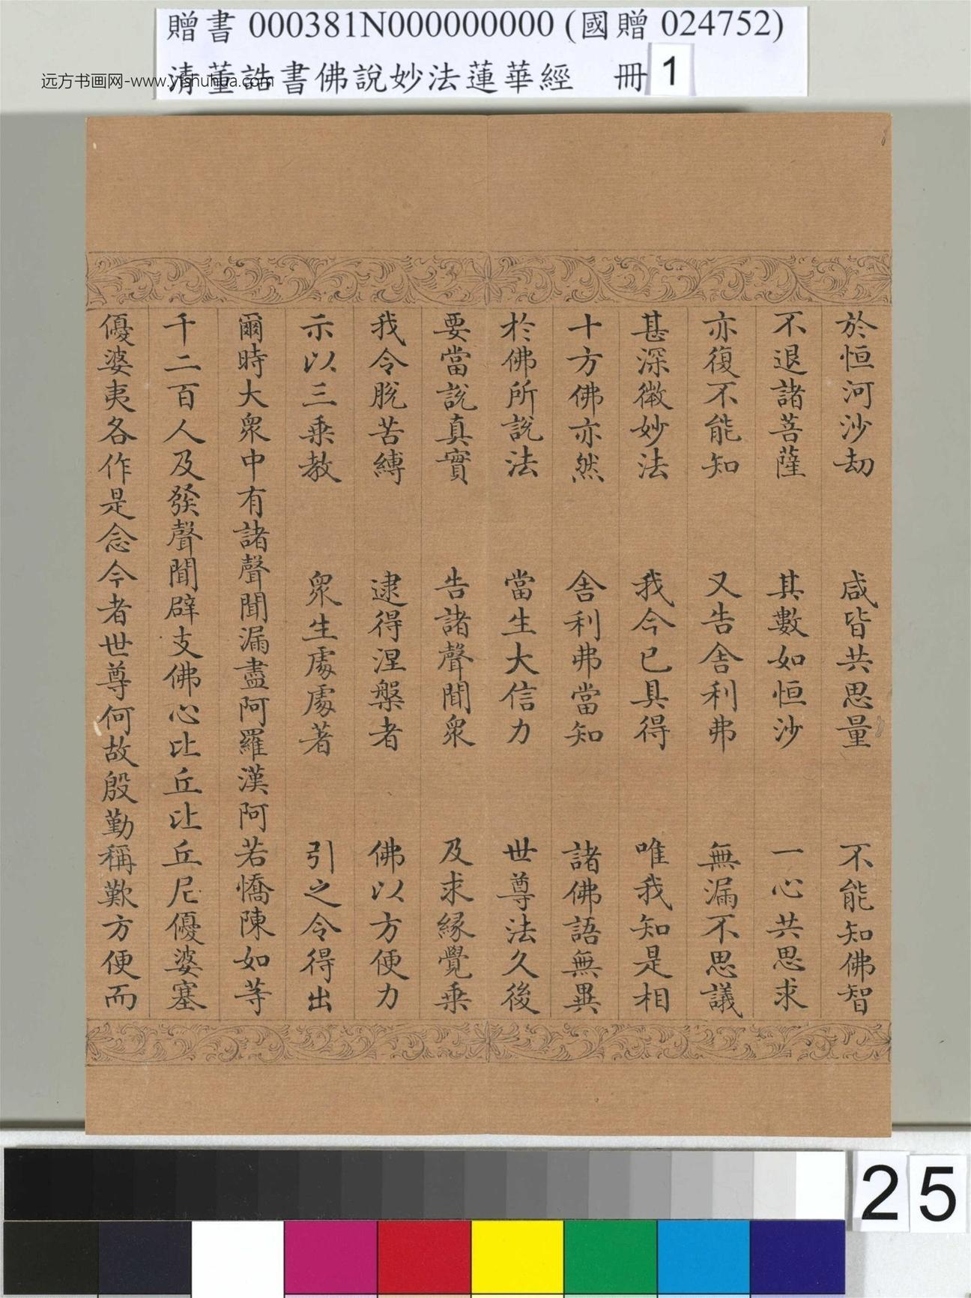 贈書 000381N000000000 (國贈 024752)
清董誥書佛說妙法蓮華經 冊 1
远方书画网-www.yishuhua.com
於恒河沙劫 咸皆共思量 不能知佛智
不退諸菩薩 其數如恒沙 一心共思求
亦復不能知 又告舍利弗 無漏不思議
甚深微妙法 我今已具得 唯我知是相
十方佛亦然 舍利弗當知 諸佛語無異
於佛所說法 當生大信力 世尊法久後
要當說真實 告諸聲聞眾 及求緣覺乘
我令脫苦縛 逮得涅槃者 佛以方便力
示以三乘教 眾生處處著 引之令得出
爾時大眾中有諸聲聞漏盡阿羅漢阿若憍陳如等
千二百人及發聲聞辟支佛心比丘比丘尼優婆塞
優婆夷各作是念今者世尊何故殷勤稱歎方便而
25